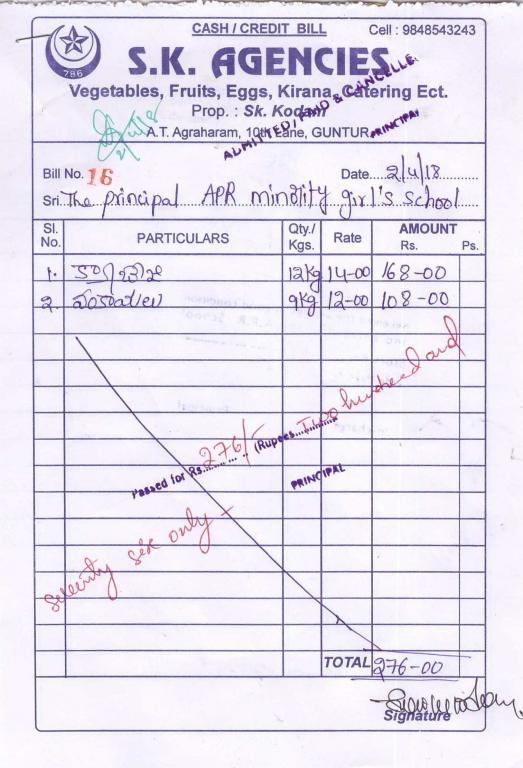 CASH / CREDIT BILL
Cell : 9848543243
786
S.K. AGENCIES
Vegetables, Fruits, Eggs, Kirana, Catering Ect.
Prop. : Sk. Kodam
A.T. Agraharam, 10th Lane, GUNTUR.
ADMITTED, PAID & CANCELLE
PRINCIPAL
Bill No. 16 Date 2/4/18
Sri. The principal APR minority girl's school
Sl. No. PARTICULARS Qty./ Kgs. Rate AMOUNT Rs. Ps.
1. 12kg 14-00 168-00
2. వంకాయలు 9kg 12-00 108-00
Passed for Rs. 276/- (Rupees Two hundred and
seventy six only -
PRINCIPAL
TOTAL 276-00
Signature